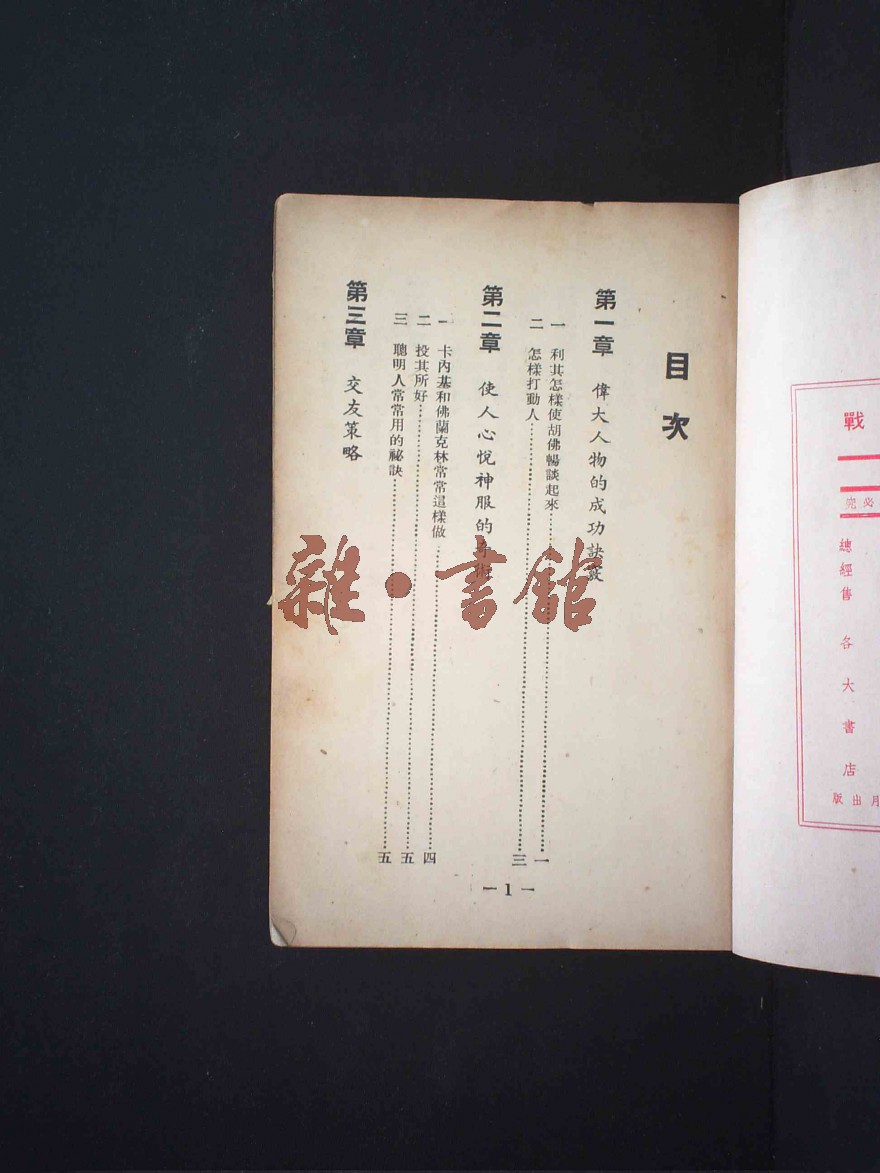 戰
必究
總經售 各大書店
月出版
目次
第一章 偉大人物的成功訣竅
一 利其怎樣使胡佛暢談起來……一
二 怎樣打動人……三
第二章 使人心悅神服的奇術
一 卡內基和佛蘭克林常常這樣做……四
二 投其所好……五
三 聰明人常常用的祕訣……五
第三章 交友策略
—1—
雜·書館